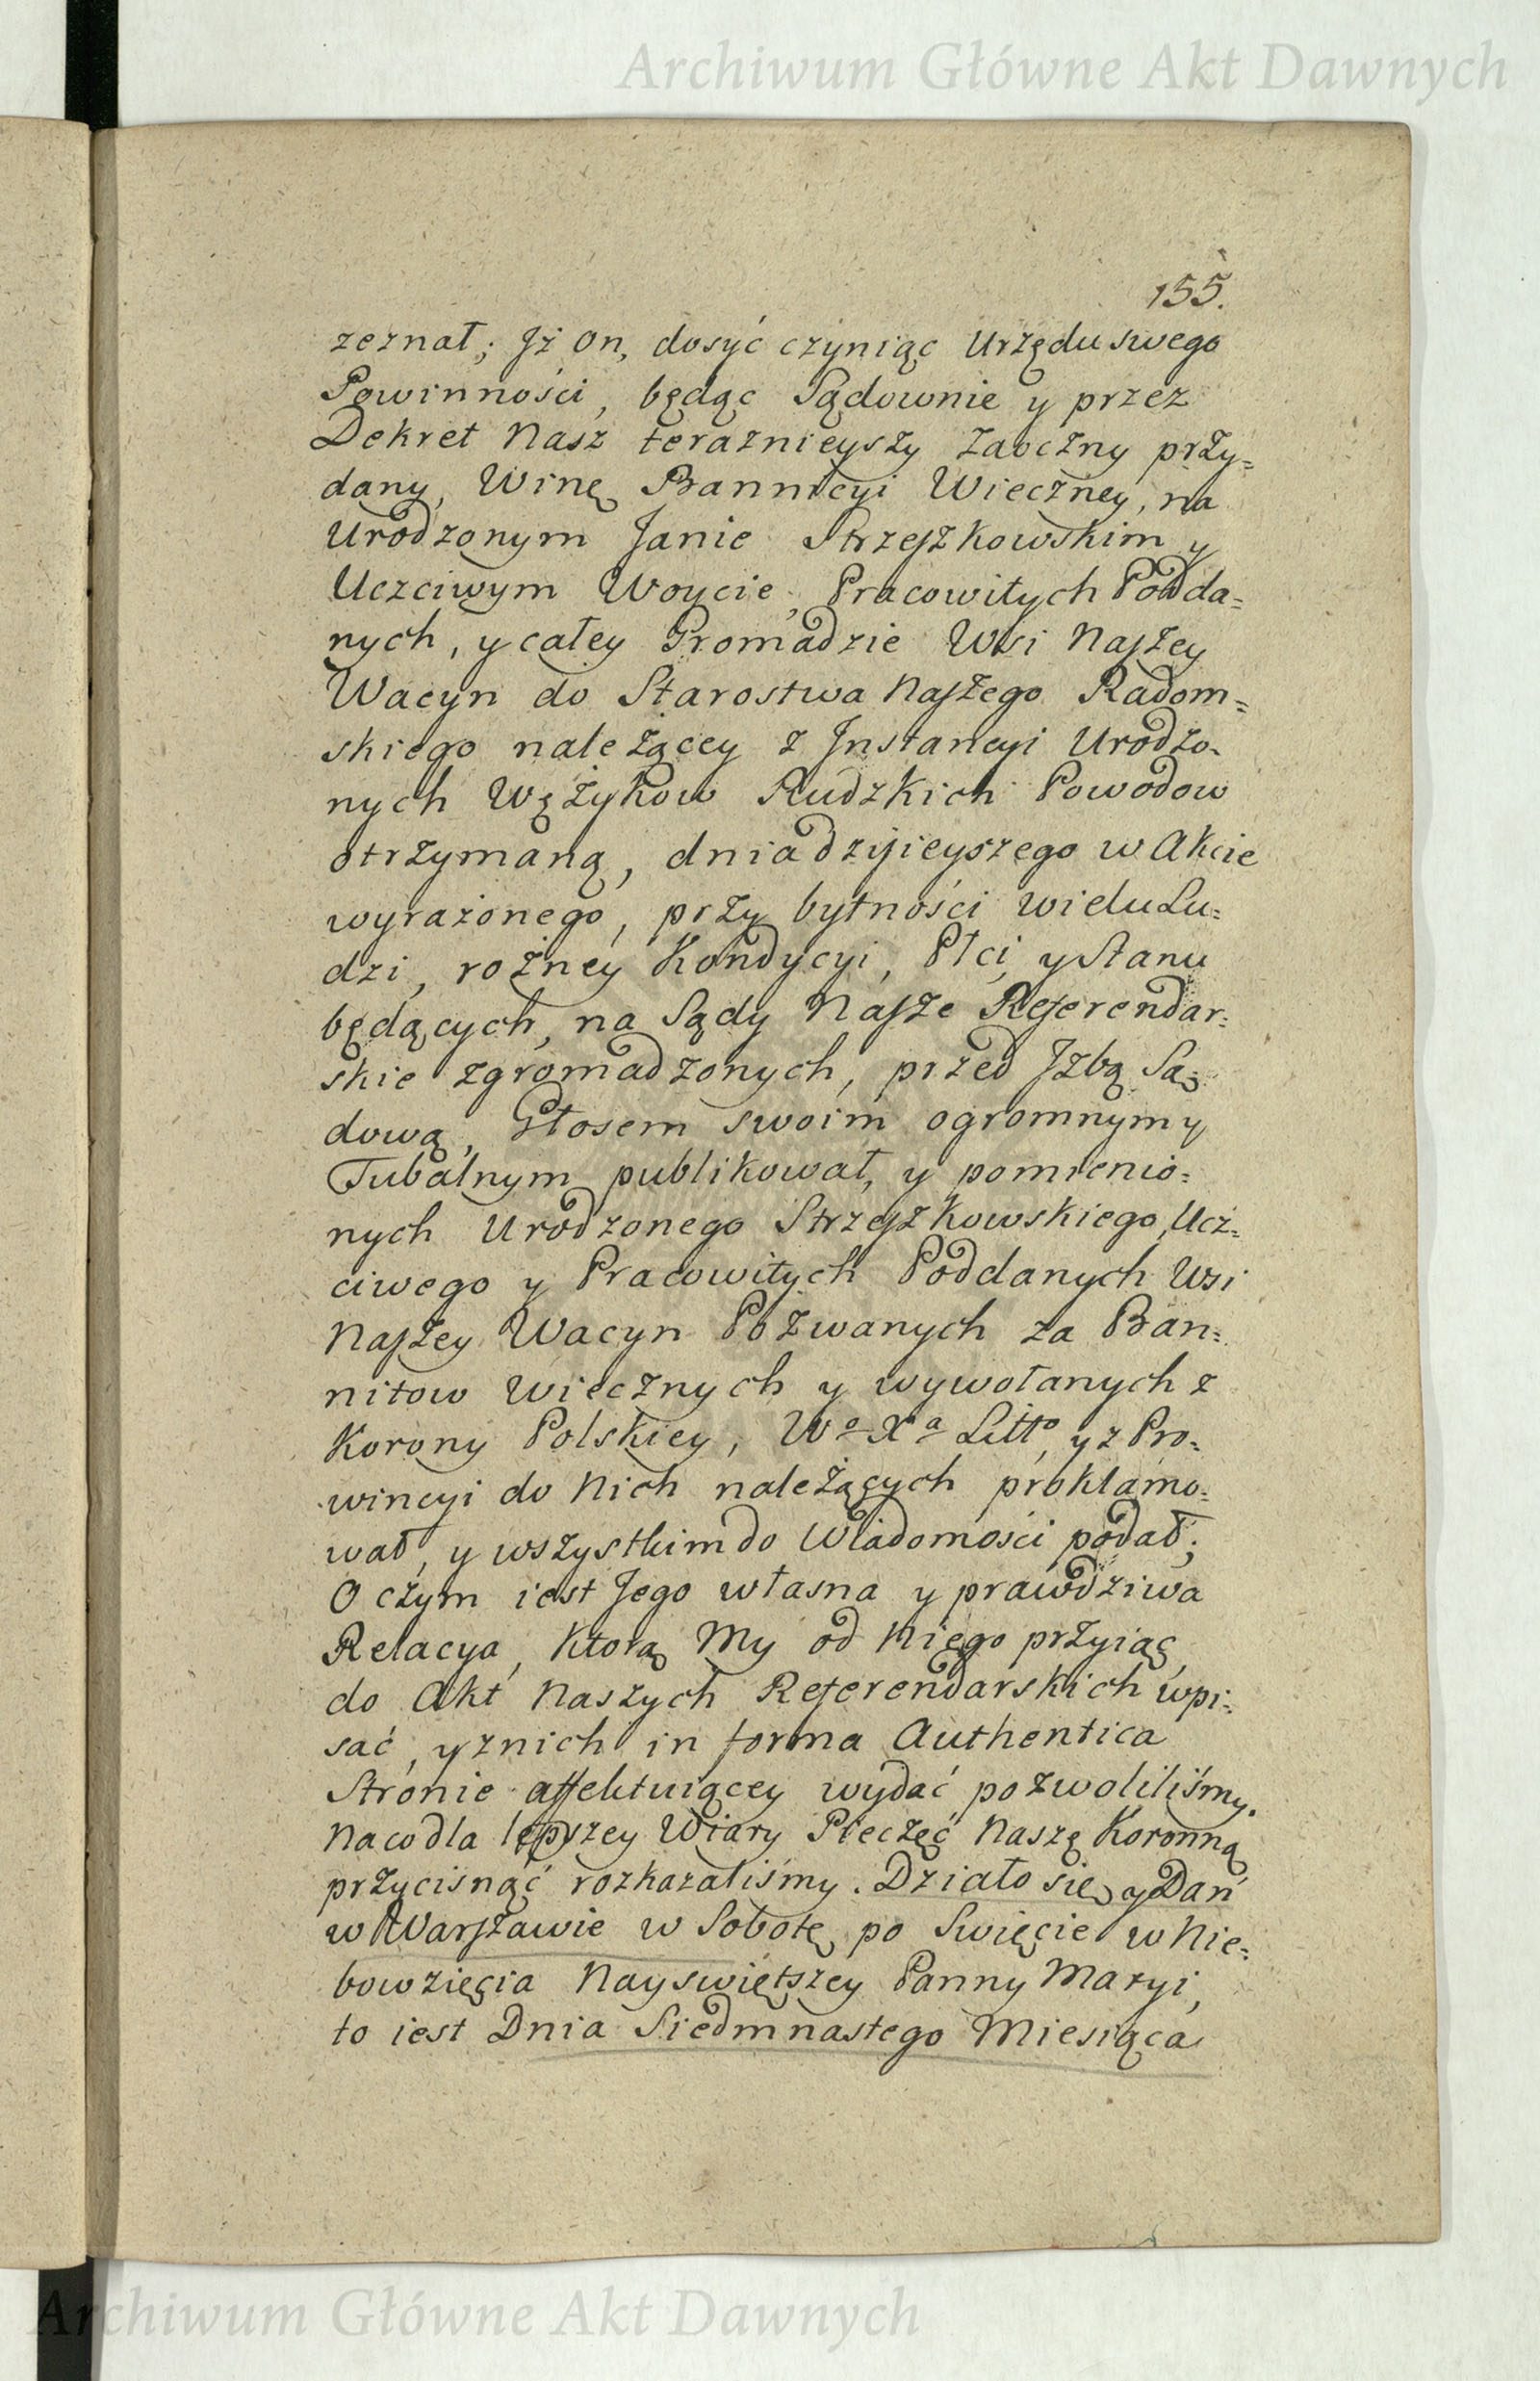 Archiwum Główne Akt Dawnych
155.
zeznał; Jż on, dosyć czyniąc Urzędu swego
Powinności, będąc Sądownie y przez
Dekret Nasz teraznieyszy zaoczny przy=
dany, Winę Bannicyi Wieczney, na
Urodzonym Janie Strzeszkowskim y
Uczciwym Woycie, Pracowitych Podda=
nych, y całey Gromadzie Wsi Naszey
Wacyn do Starostwa Naszego Radom=
skiego należącey z Jnstancyi Urodzo-
nych Wężykow Rudzkich Powodow
otrzymaną, dnia dzisieyszego w Akcie
wyrażonego, przy bytności wielu Lu=
dzi, rożney Kondycyi, Płci, y Stanu
będących, na Sądy Nasze Referendar=
skie zgromadzonych, przed Jzbą Są=
dową, Głosem swoim ogromnym y
Tubalnym publikował, y pomienio=
nych Urodzonego Strzeszkowskiego, Ucz=
ciwego y Pracowitych Poddanych Wsi
Naszey Wacyn Pozwanych za Ban=
nitow wiecznych y wywołanych z
Korony Polskiey, Wo Xa Litto, y z Pro=
wincyi do Nich należących proklamo=
wał, y wszystkim do Wiadomości podał;
O czym iest Jego własna y prawdziwa
Relacya, ktorą My od Niego przyiąć
do Akt Naszych Referendarskich wpi=
sać, y z nich in forma Authentica
Stronie affektuiącey wydać pozwoliliśmy.
Na co dla lepszey Wiary Pieczęć Naszę Koronną
przycisnąć rozkazaliśmy. Działo się y Dan
w Warszawie w Sobotę po Swięcie w Nie=
bowzięcia Nayswiętszey Panny Maryi,
to iest Dnia Siedmnastego Miesiąca
Archiwum Główne Akt Dawnych